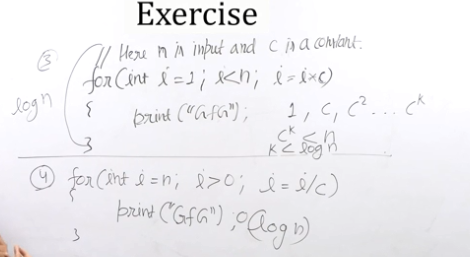 Exercise
③ // Here n is input and c is a constant.
for(int i=1; i<n; i=i*c)
log n
{ print("GfG"); 1, c, c² ... cᵏ
} cᵏ < n
k < log n
④ for(int i=n; i>0; i=i/c)
{
print("GfG"); O(log n)
}